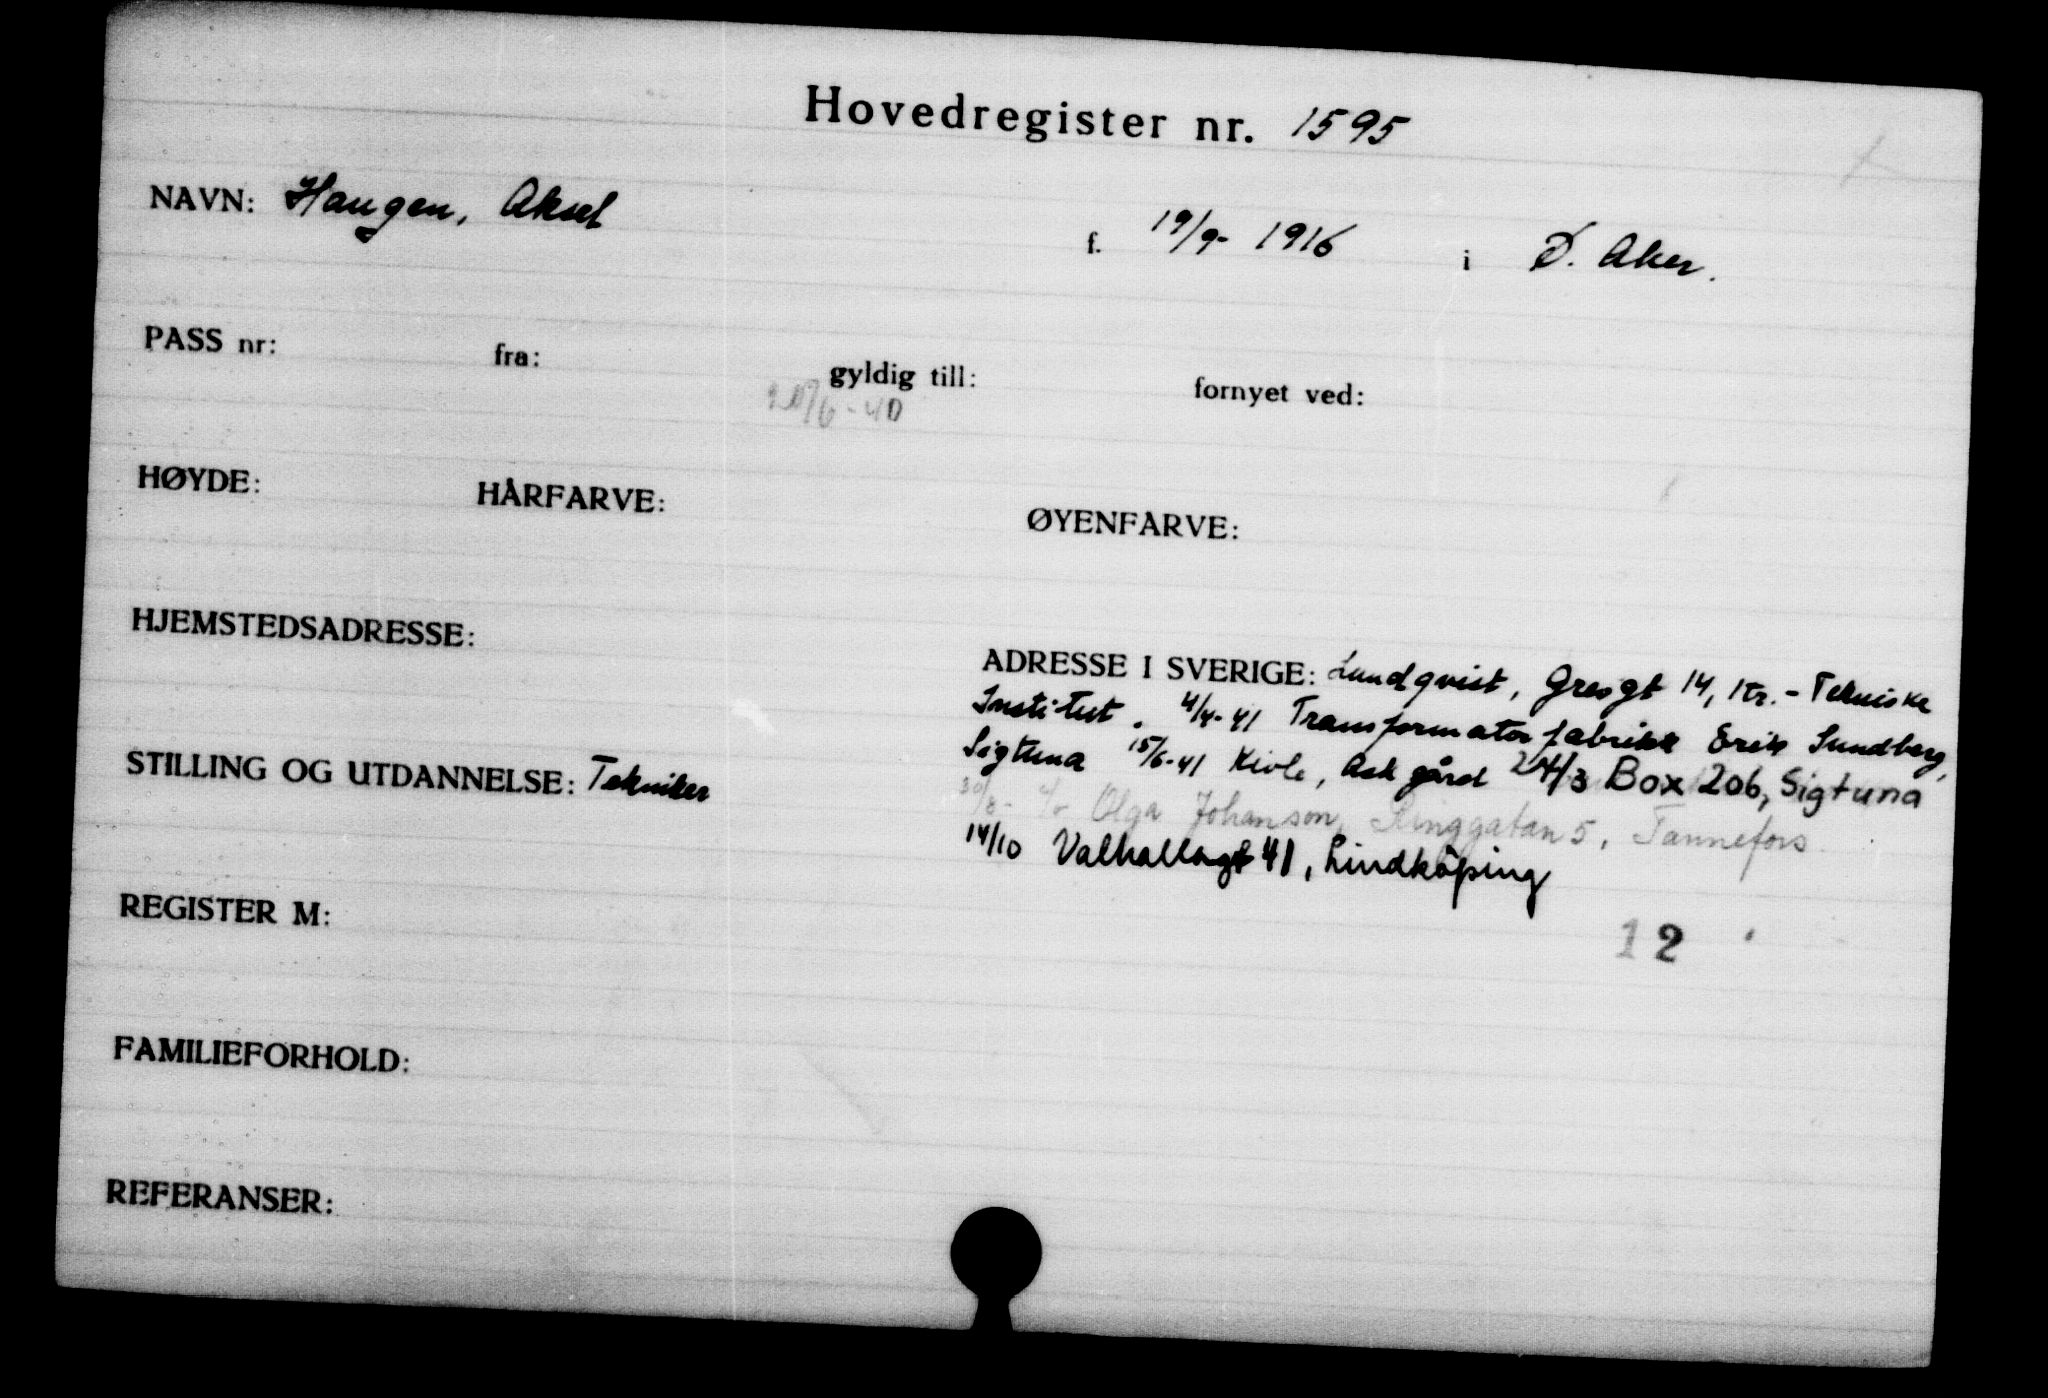 Hovedregister nr. 1595
NAVN: Haugen, Aksel f. 19/9- 1916 i Ø. Aker.
PASS nr: fra: gyldig till: fornyet ved:
/6-40
HØYDE: HÅRFARVE: ØYENFARVE:
HJEMSTEDSADRESSE:
ADRESSE I SVERIGE: Lundqvist, Grevgt 14, 1tr. - Tekniske
Institut. 4/4-41 Transformatorfabrikk Erik Sundberg,
Sigtuna 15/6-41 Kivle, Ask gård 24/3 Box 206, Sigtuna
30/8- c/o Olga Johanson, Ringgatan 5, Tannefors
14/10 Valhallagt 41, Lindköping
STILLING OG UTDANNELSE: Tekniker
12
REGISTER M:
FAMILIEFORHOLD:
REFERANSER: